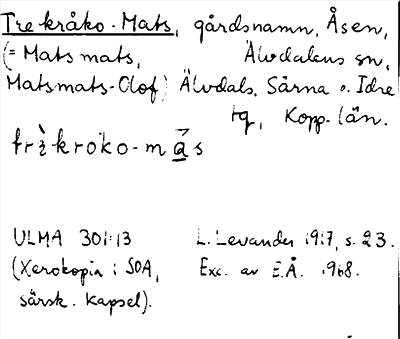 Trekråko-Mats, gårdsnamn, Åsen,
(= Mats mats, Älvdalens sn,
Matsmats-Olof) Älvdals, Särna o. Idre
tg, Kopp. län.
frèkroko-mas
ULMA 301:13 L. Levander 1917, s. 23.
(Xerokopia i SOA, Exc. av E.Å. 1968.
särsk. kapsel).